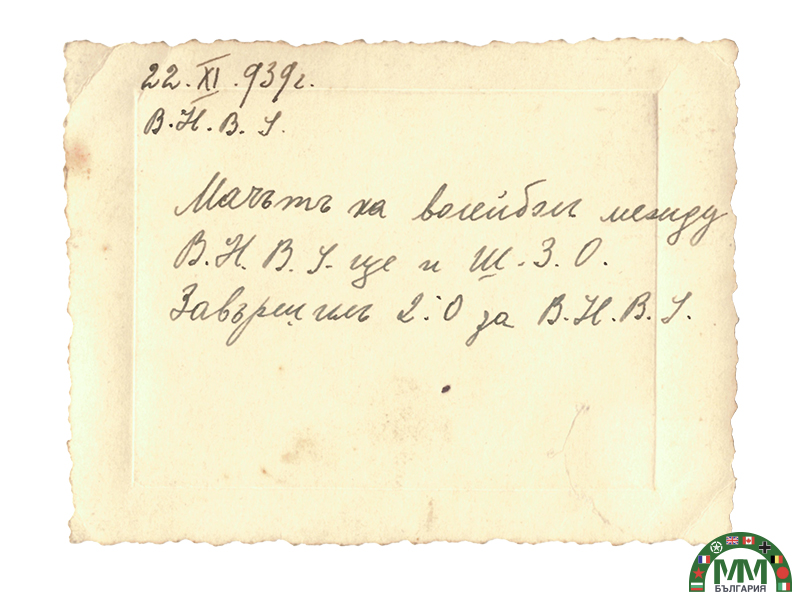 22.XI.939г.
В.Н.В.У.
Мачътъ на волейболъ между
В.Н.В.У-ще и Ш.З.О.
Завършилъ 2:0 за В.Н.В.У.
ММ
БЪЛГАРИЯ